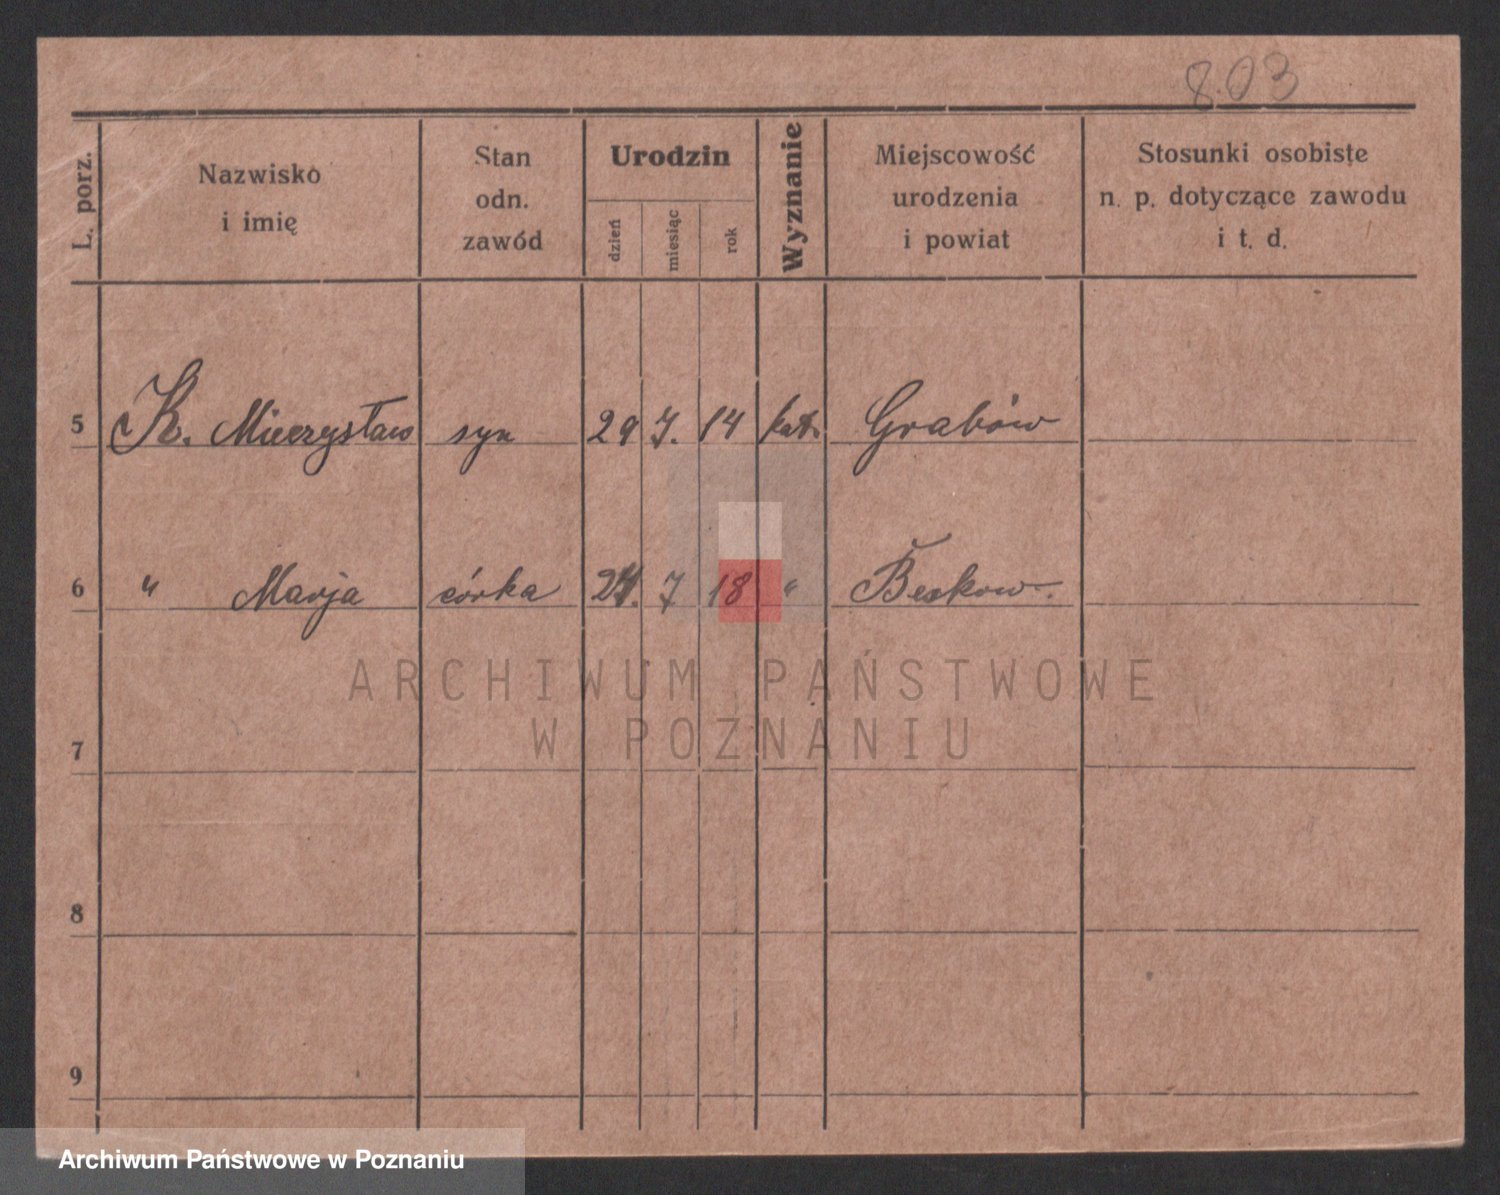 803
L. porz.
Nazwisko
i imię
Stan
odn.
zawód
Urodzin
dzień
miesiąc
rok
Wyznanie
Miejscowość
urodzenia
i powiat
Stosunki osobiste
n. p. dotyczące zawodu
i t. d.
5 K. Mieczysław syn 29 7. 14 kat. Grabów
6 " Marja córka 24. 7 18 " Beskow.
ARCHIWUM PAŃSTWOWE
W POZNANIU
7
8
9
Archiwum Państwowe w Poznaniu